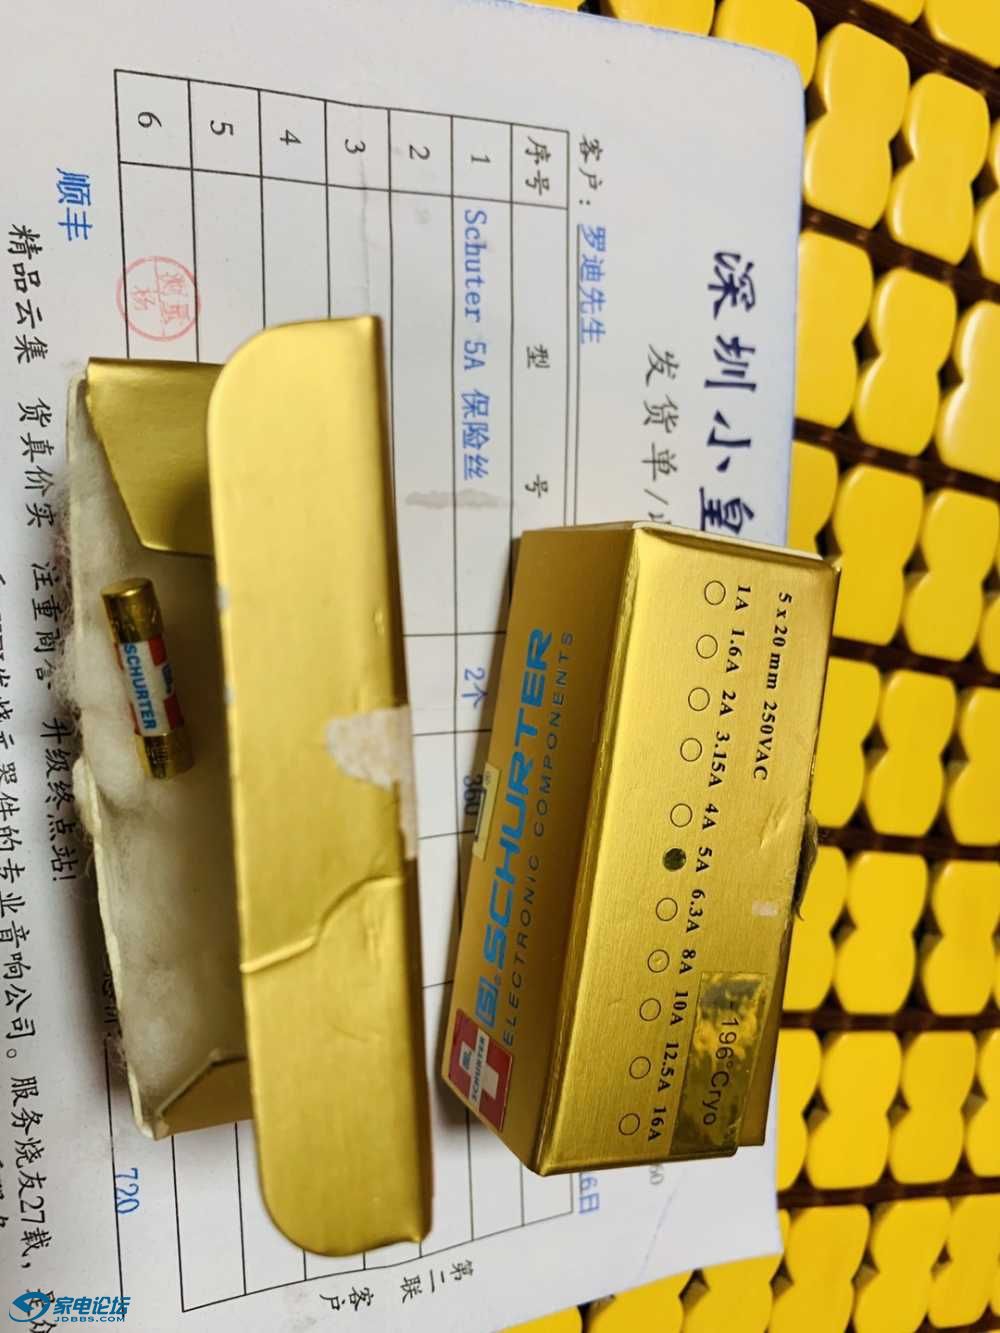 深圳小皇
发货单/
客户：罗迪先生
序号 型 号
1 Schuter 5A 保险丝 2个 360
2
3
4
5
6
720
顺丰
测量
杨
精品云集 货真价实 注重商 升级终点站!
烧元器件的专业音响公司。服务烧友27载，
第二联 客户
6日
5 x 20 mm 250VAC
1A 1.6A 2A 3.15A 4A 5A 6.3A 8A 10A 12.5A 16A
-196°Cryo
SCHURTER
ELECTRONIC COMPONENTS
SCHURTER
SCHURTER
家电论坛
JDBBS.COM